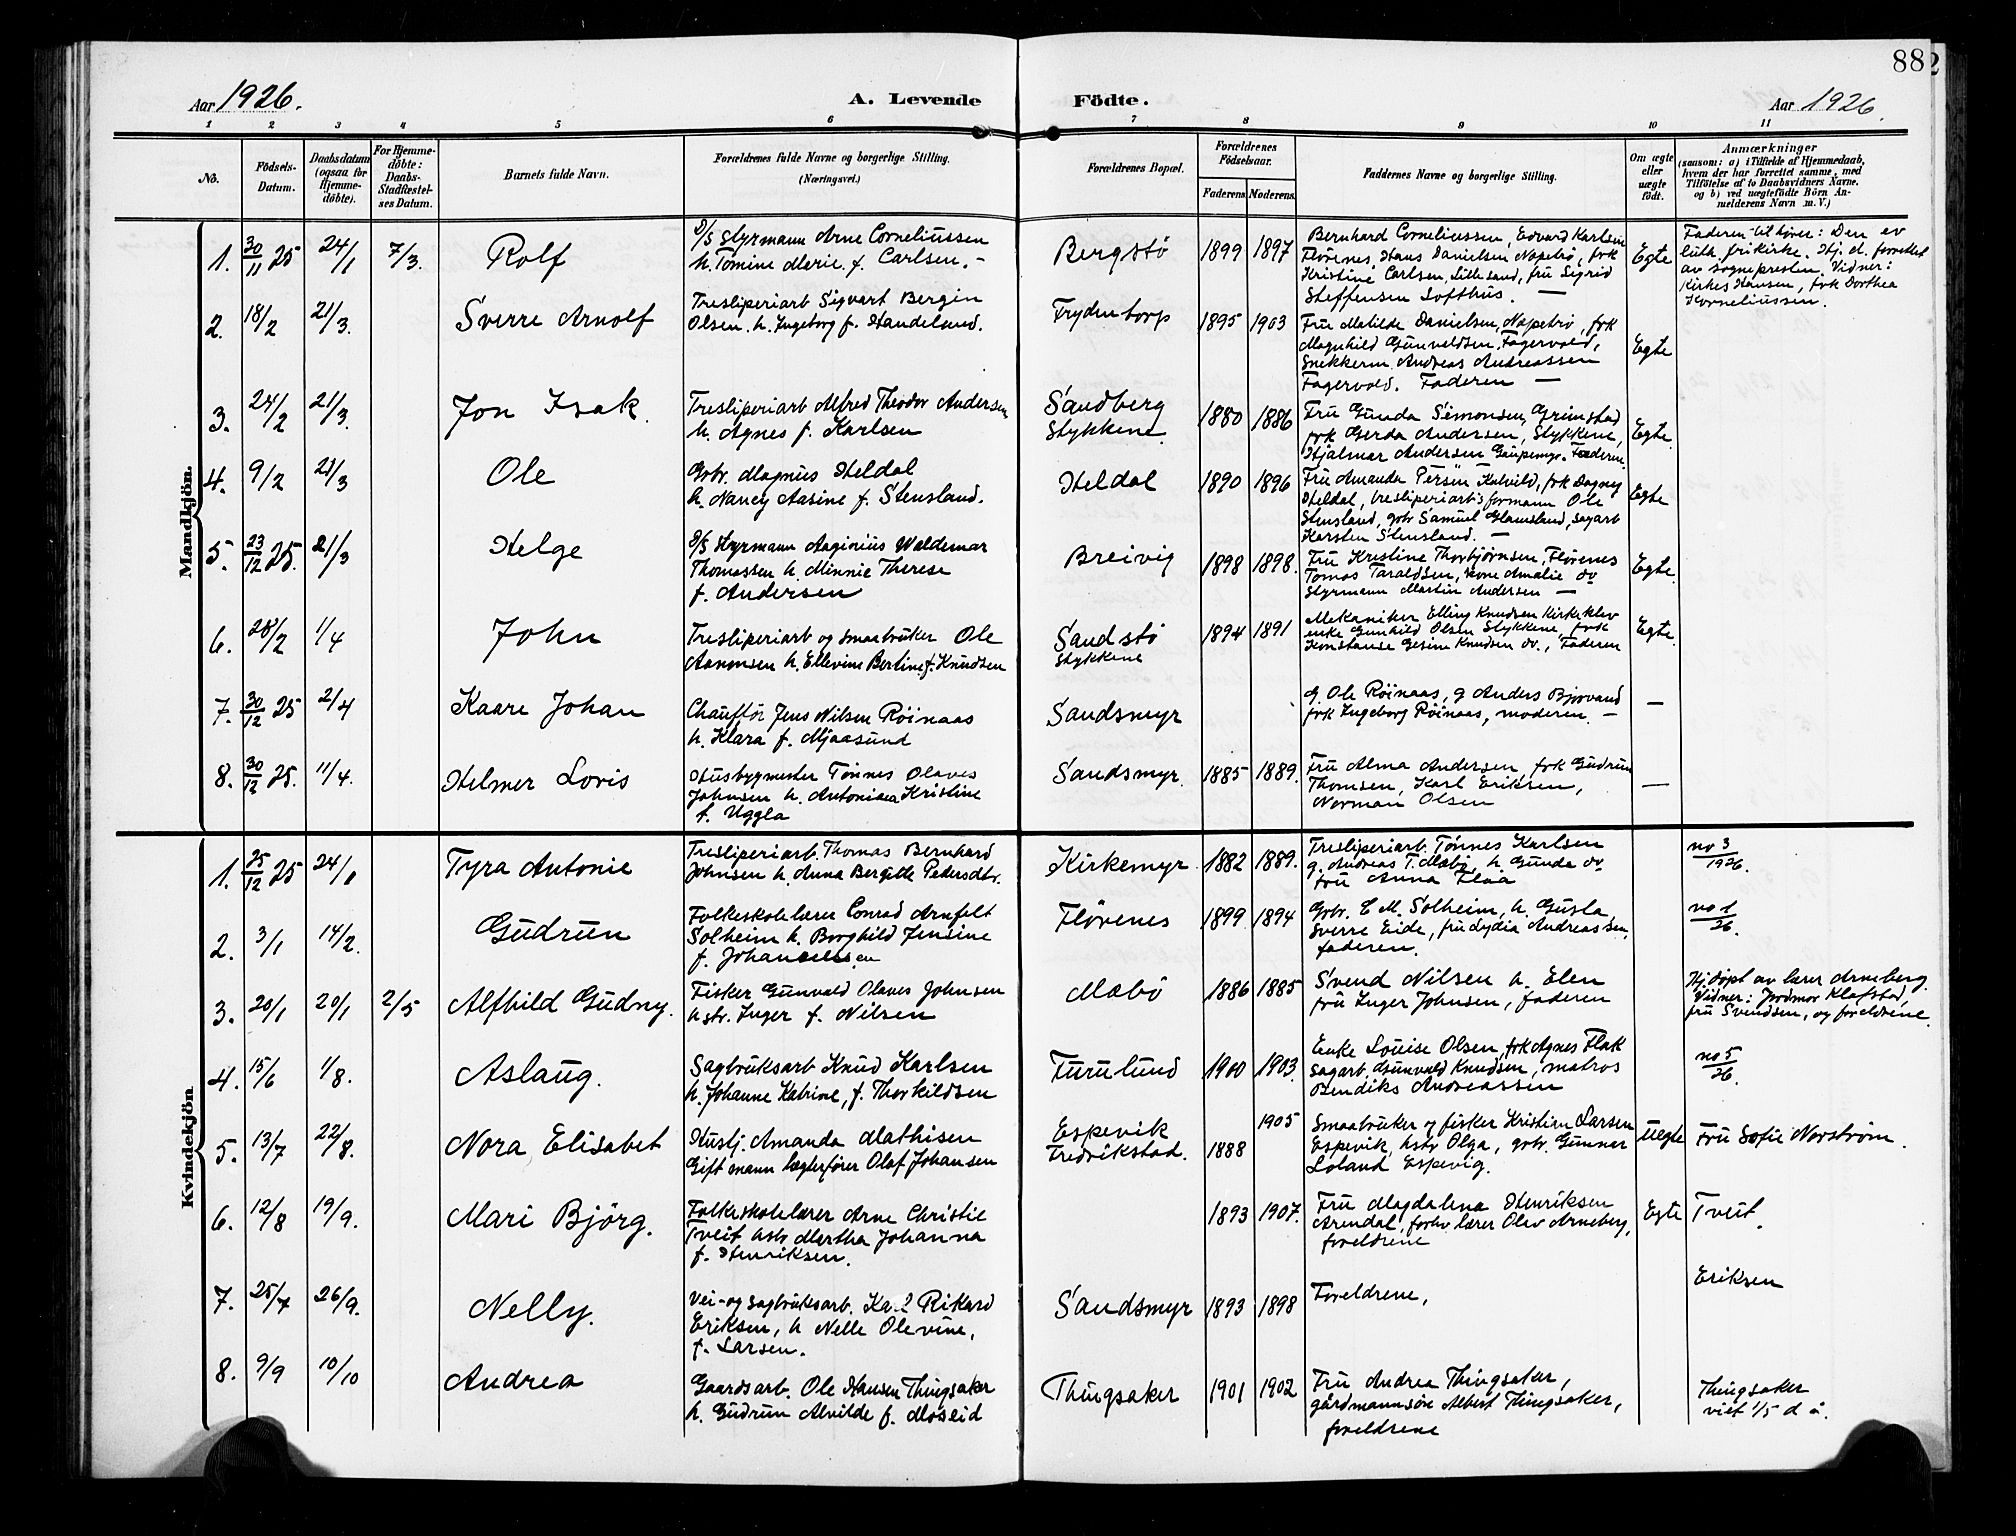 88
Aar 1926.
A. Levende Födte.
Aar 1926.
1 2 3 4 5 6 7 8 9 10 11
No.
Födsels-
Datum.
Daabsdatum
(ogsaa for
Hjemme-
döbte).
For Hjemme-
döbte:
Daabs-
Stadfæstel-
ses Datum.
Barnets fulde Navn.
Forældrenes fulde Navne og borgerlige Stilling.
(Næringsvei.)
Forældrenes Bopæl.
Forældrenes
Födselsaar.
Faderens Moderens.
Faddernes Navne og borgerlige Stilling.
Om ægte
eller
uægte
födt.
Anmærkninger
(saasom: a) i Tilfælde af Hjemmedaab,
hvem der har forrettet samme, med
Tilföielse af to Daabsvidners Navne,
og b) ved uægtefödte Börn An-
melderens Navn m. V.)
Mandkjön.
1. 30/11 25 24/1 7/3. Rolf
D/S Styrmann Arne Corneliussen
h. Tomine Marie f. Carlsen. -
Bergstø 1899 1897
Bernhard Corneliussen, Edvard Karlsen
Flørenes Hans Danielsen Napetrø, frk
Kristine Carlsen, Lillesand, fru Sigrid
Steffensen Lofthus. —
Egte
Faderen tilhører: Den ev
luth. frikirke. Hj. d. forrettet
av sognepresten. Vidner:
Kirkes Hansen, frk Dorthea
Korneliussen.
2. 18/2 21/3. Sverre Arnolf
Tresliperiarb Sigvart Bergin
Olsen. h. Ingeborg f. Handeland.
Frydenborg 1895 1903
Fru Matilde Danielsen, Napetrø, frk
Magnhild Gunvaldsen, Fagervold,
Snekkerm. Andreas Andreassen
Fagervold. Faderen —
Egte
3. 24/2 21/3. Jon Isak.
Tresliperiarb Alfred Theodor Andersen
h. Agnes f. Karlsen
Sandberg
Stykkene. 1880 1886
Fru Gunda Simonsen, Grimstad
frk Gerda Andersen, Stykkene,
Hjalmar Andersen Gaupemyr. Faderen
Egte.
4. 9/2 21/3 Ole
Gbr. Magnus Heldal
h. Nancy Aasine f. Stensland.
Heldal 1890 1896
Fru Amanda Persin Kalvild, frk Dagny
Heldal, tresliperiarb.sformann Ole
Stensland, gbr Samuel Glamsland, sagarb
Karsten Stensland. —
Egte
5. 23/12 25. 21/3 Helge
D/S Styrmann Aaginius Waldemar
Thomassen h. Minnie Therese
f. Andersen
Breivig 1898 1898.
Fru Kristine Thorbjørnsen, Flørenes
Tomas Taraldsen, kone Amalie do
Styrmann Martin Andersen —
Egte.
6. 28/2 1/4 John
Tresliperiarb og smaabruker Ole
Aanonsen h. Ellevine Bertine f. Knudsen
Sandstø
Stykkene 1894 1891
Mekaniker Elling Knudsen Kirkeklev
enke Gunhild Olsen Stykkene, frk
Konstanse Gesine Knudsen do., Faderen
Egte.
7. 30/12 25 2/4 Kaare Johan
Chauffør Jens Nilsen Røinaas
h. Klara f. Mjaasund
Sandsmyr
g. Ole Røinaas, g Anders Bjorvand
frk Ingeborg Røinaas, moderen. —
—
8. 30/12 25. 11/4. Helmer Loris
Husbygmester Tønnes Olaves
Johnsen h. Antoniaea Kristine
f. Uggla
Sandsmyr. 1885 1889.
Fru Alma Andersen frk Gudrun
Thomsen, Karl Eriksen,
Norman Olsen
—
Kvindekjön
1. 25/12 25 24/1 Tyra Antonie
Tresliperiarb. Thomas Bernhard
Johnsen h. Anna Bergitte Pedersdtr.
Kirkemyr 1882 1889.
Tresliperiarb. Tønnes Karlsen
g. Andreas T. Mæbø, h Gunda do
fru Anna Fløa
no 3/1926.
2. 3/1 14/2. Gudrun
Folkeskolelærer Conrad Arnfelt
Solheim h. Borghild Jensine
f. Johannessen
Flørenes 1899 1894
Gbr. E M. Solheim, h. Gusta
Sverre Eide, fru Lydia Andreassen,
faderen.
no 1/26.
3. 20/1 20/1 2/5 Alfhild Gudny.
Fisker Gunvald Olaves Johnsen
hstr. Inger f. Nilsen
Mæbø 1886 1885
Svend Nilsen h. Elen
fru Inger Johnsen, faderen
Hj.døpt av lærer Arneberg.
Vidner: Jordmor Klafstad,
fru Svendsen, og foreldrene.
4. 15/6 1/8. Aslaug.
Sagbruksarb Knud Karlsen
h. Johanne Katrine, f. Thorkildsen
Furulund 1900 1903.
Enke Louise Olsen, frk Agnes Flak
sagarb. Gunvald Knudsen, matros
Bendiks Andreassen
no 5/26.
5. 13/7 22/8. Nora Elisabet
Hustj. Amanda Mathisen
Gift mann lægterfører Olaf Johansen
Espevik
Fredrikstad. 1888 1905
Smaabruker og fisker Kristian Larsen
Espevik, hstr Olga, gbr. Gunnar
Løland Espevig.
Uegte
Fru Sofie Norstrøm.
6. 12/8 19/9. Mari Bjørg.
Folkeskolelærer Arne Christie
Tveit hstr Martha Johanna
f. Henriksen.
1893 1907.
Fru Magdalena Henriksen
Arendal, forhv lærer Olav Arneberg,
foreldrene
Egte
Tveit.
7. 25/7 26/9. Nelly.
Vei- og sagbruksarb. Ka-l Rikard
Eriksen, h Nelle Olevine,
f. Larsen.
Sandsmyr 1893 1898
Foreldrene,
Eriksen
8. 9/9 10/10 Andrea
Gaardsarb. Ole Hansen Thingsaker
h. Gudrun Alvilde f. Moseid
Thingsaker 1901 1902
Fru Andrea Thingsaker,
gårdmannsøn Albert Thingsaker,
foreldrene
Thingsaker
viet 1/5 d å.